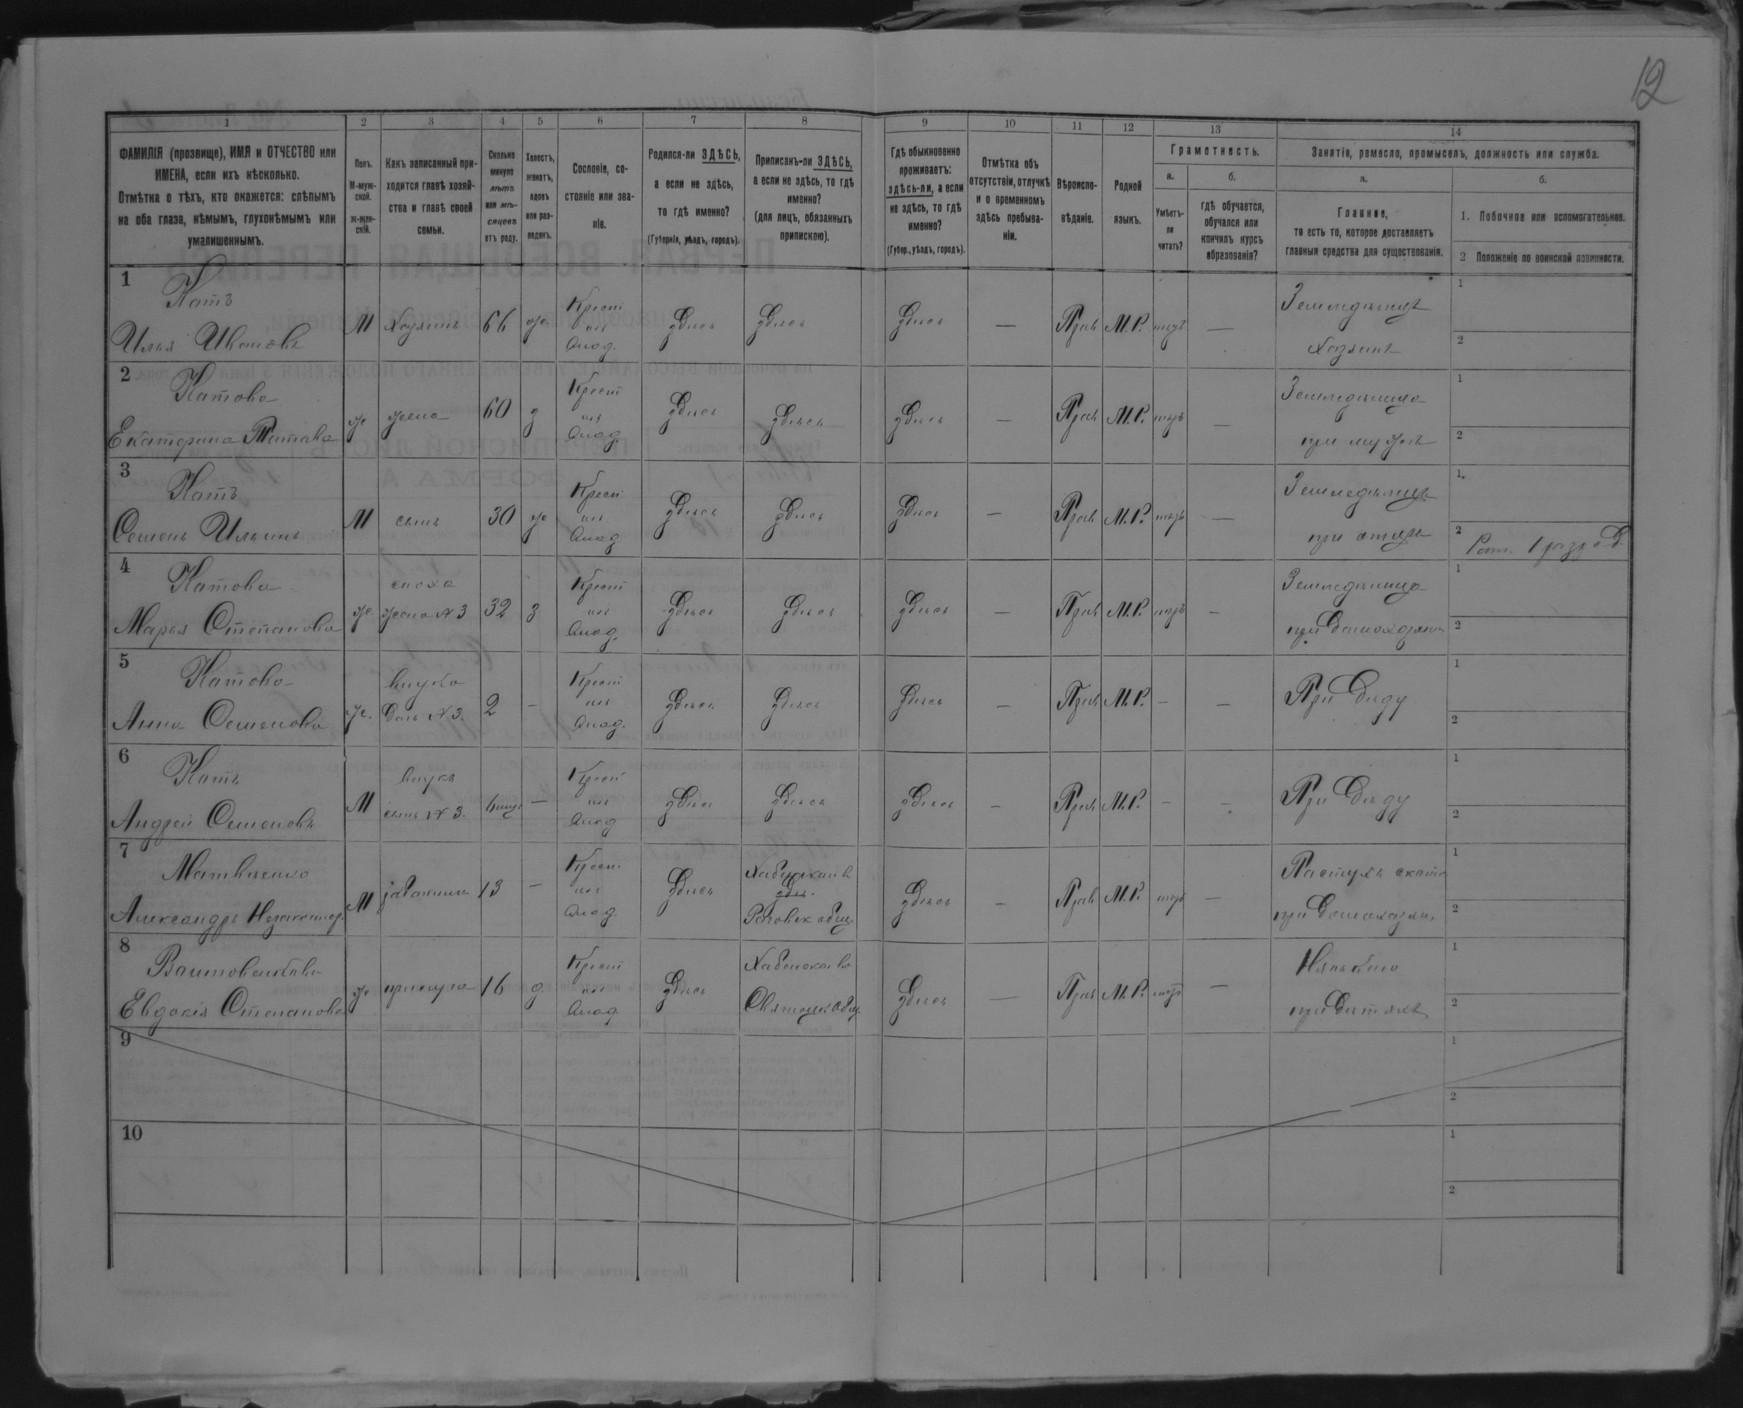 12
1
2
3
4
5
6
7
8
9
10
11
12
13
14
ФАМИЛІЯ (прозвище), ИМЯ и ОТЧЕСТВО или
ИМЕНА, если ихъ нѣсколько.
Отмѣтка о тѣхъ, кто окажется: слѣпымъ
на оба глаза, нѣмымъ, глухонѣмымъ или
умалишеннымъ.
Полъ.
М-муж-
ской.
Ж-жен-
скій.
Какъ записанный при-
ходится главѣ хозяй-
ства и главѣ своей
семьи.
Сколько
минуло
лѣтъ
или мѣ-
сяцевъ
отъ роду.
Холостъ,
женатъ,
вдовъ
или раз-
веденъ.
Сословіе, со-
стояніе или зва-
ніе.
Родился-ли ЗДѢСЬ,
а если не здѣсь,
то гдѣ именно?
(Губернія, уѣздъ, городъ).
Приписанъ-ли ЗДѢСЬ,
а если не здѣсь, то гдѣ
именно?
(для лицъ, обязанныхъ
припискою).
Гдѣ обыкновенно
проживаетъ:
здѣсь-ли, а если
не здѣсь, то гдѣ
именно?
(Губер., уѣздъ, городъ).
Отмѣтка объ
отсутствіи, отлучкѣ
и о временномъ
здѣсь пребыва-
ніи.
Вѣроиспо-
вѣданіе.
Родной
языкъ.
Грамотность.
а.
б.
Умѣетъ-
ли
читать?
гдѣ обучается,
обучался или
кончилъ курсъ
образованія?
Занятіе, ремесло, промыселъ, должность или служба.
а.
б.
Главное,
то есть то, которое доставляетъ
главныя средства для существованія.
1. Побочное или вспомогательное.
2 Положеніе по воинской повинности.
1
Катъ
Илья Ивановъ
М
Хозяинъ
66
ж.
Крест
изъ
Влад.
Здѣсь
Здѣсь
Здѣсь
—
Прав
М.Р.
нѣтъ
—
Земледѣлецъ
Хозяинъ
1
2
2
Катова
Екатерина Титова
ж
жена
60
з
Крест
изъ
Влад
Здѣсь
Здѣсь
Здѣсь
—
Прав
М.Р.
нѣтъ
—
Земледѣлица
при мужѣ
1
2
3
Катъ
Семенъ Ильинъ
М
сынъ
30
ж
Крест
изъ
Влад
Здѣсь
Здѣсь
Здѣсь
—
Прав
М.Р.
нѣтъ
—
Земледѣлецъ
при отцѣ
1.
2
Ратн. 1 разряд.
4
Катова
Марья Степанова
ж.
сноха
жена N 3
32
з
Крест
изъ
Влад.
Здѣсь
Здѣсь
Здѣсь
—
Прав
М.Р.
нѣтъ
—
Земледѣлица
при домохозяин
1
2
5
Катова
Анна Семенова
ж.
внука
дочь N 3.
2
—
Крест
изъ
Влад.
Здѣсь
Здѣсь
Здѣсь
—
Прав
М.Р.
—
—
При дѣду
1
2
6
Катъ
Андрей Семеновъ
М
внукъ
сынъ N 3.
—
Крест
изъ
Влад
Здѣсь
Здѣсь
Здѣсь
—
Прав
М.Р.
—
—
При дѣду
1
2
7
Матвиенко
Александръ
М
13
—
Крест.
изъ
Влад
Здѣсь
Здѣсь
—
Прав
М.Р.
нѣтъ
—
Пастухъ скота
при домохозяин.
1
2
8
Евдокія Степанова
ж
прислуга
16
д.
Крест
изъ
Влад
Здѣсь
Здѣсь
—
Прав
М.Р.
нѣтъ
—
Нянькою
при дѣтяхъ
1
2
9
1
2
10
1
2